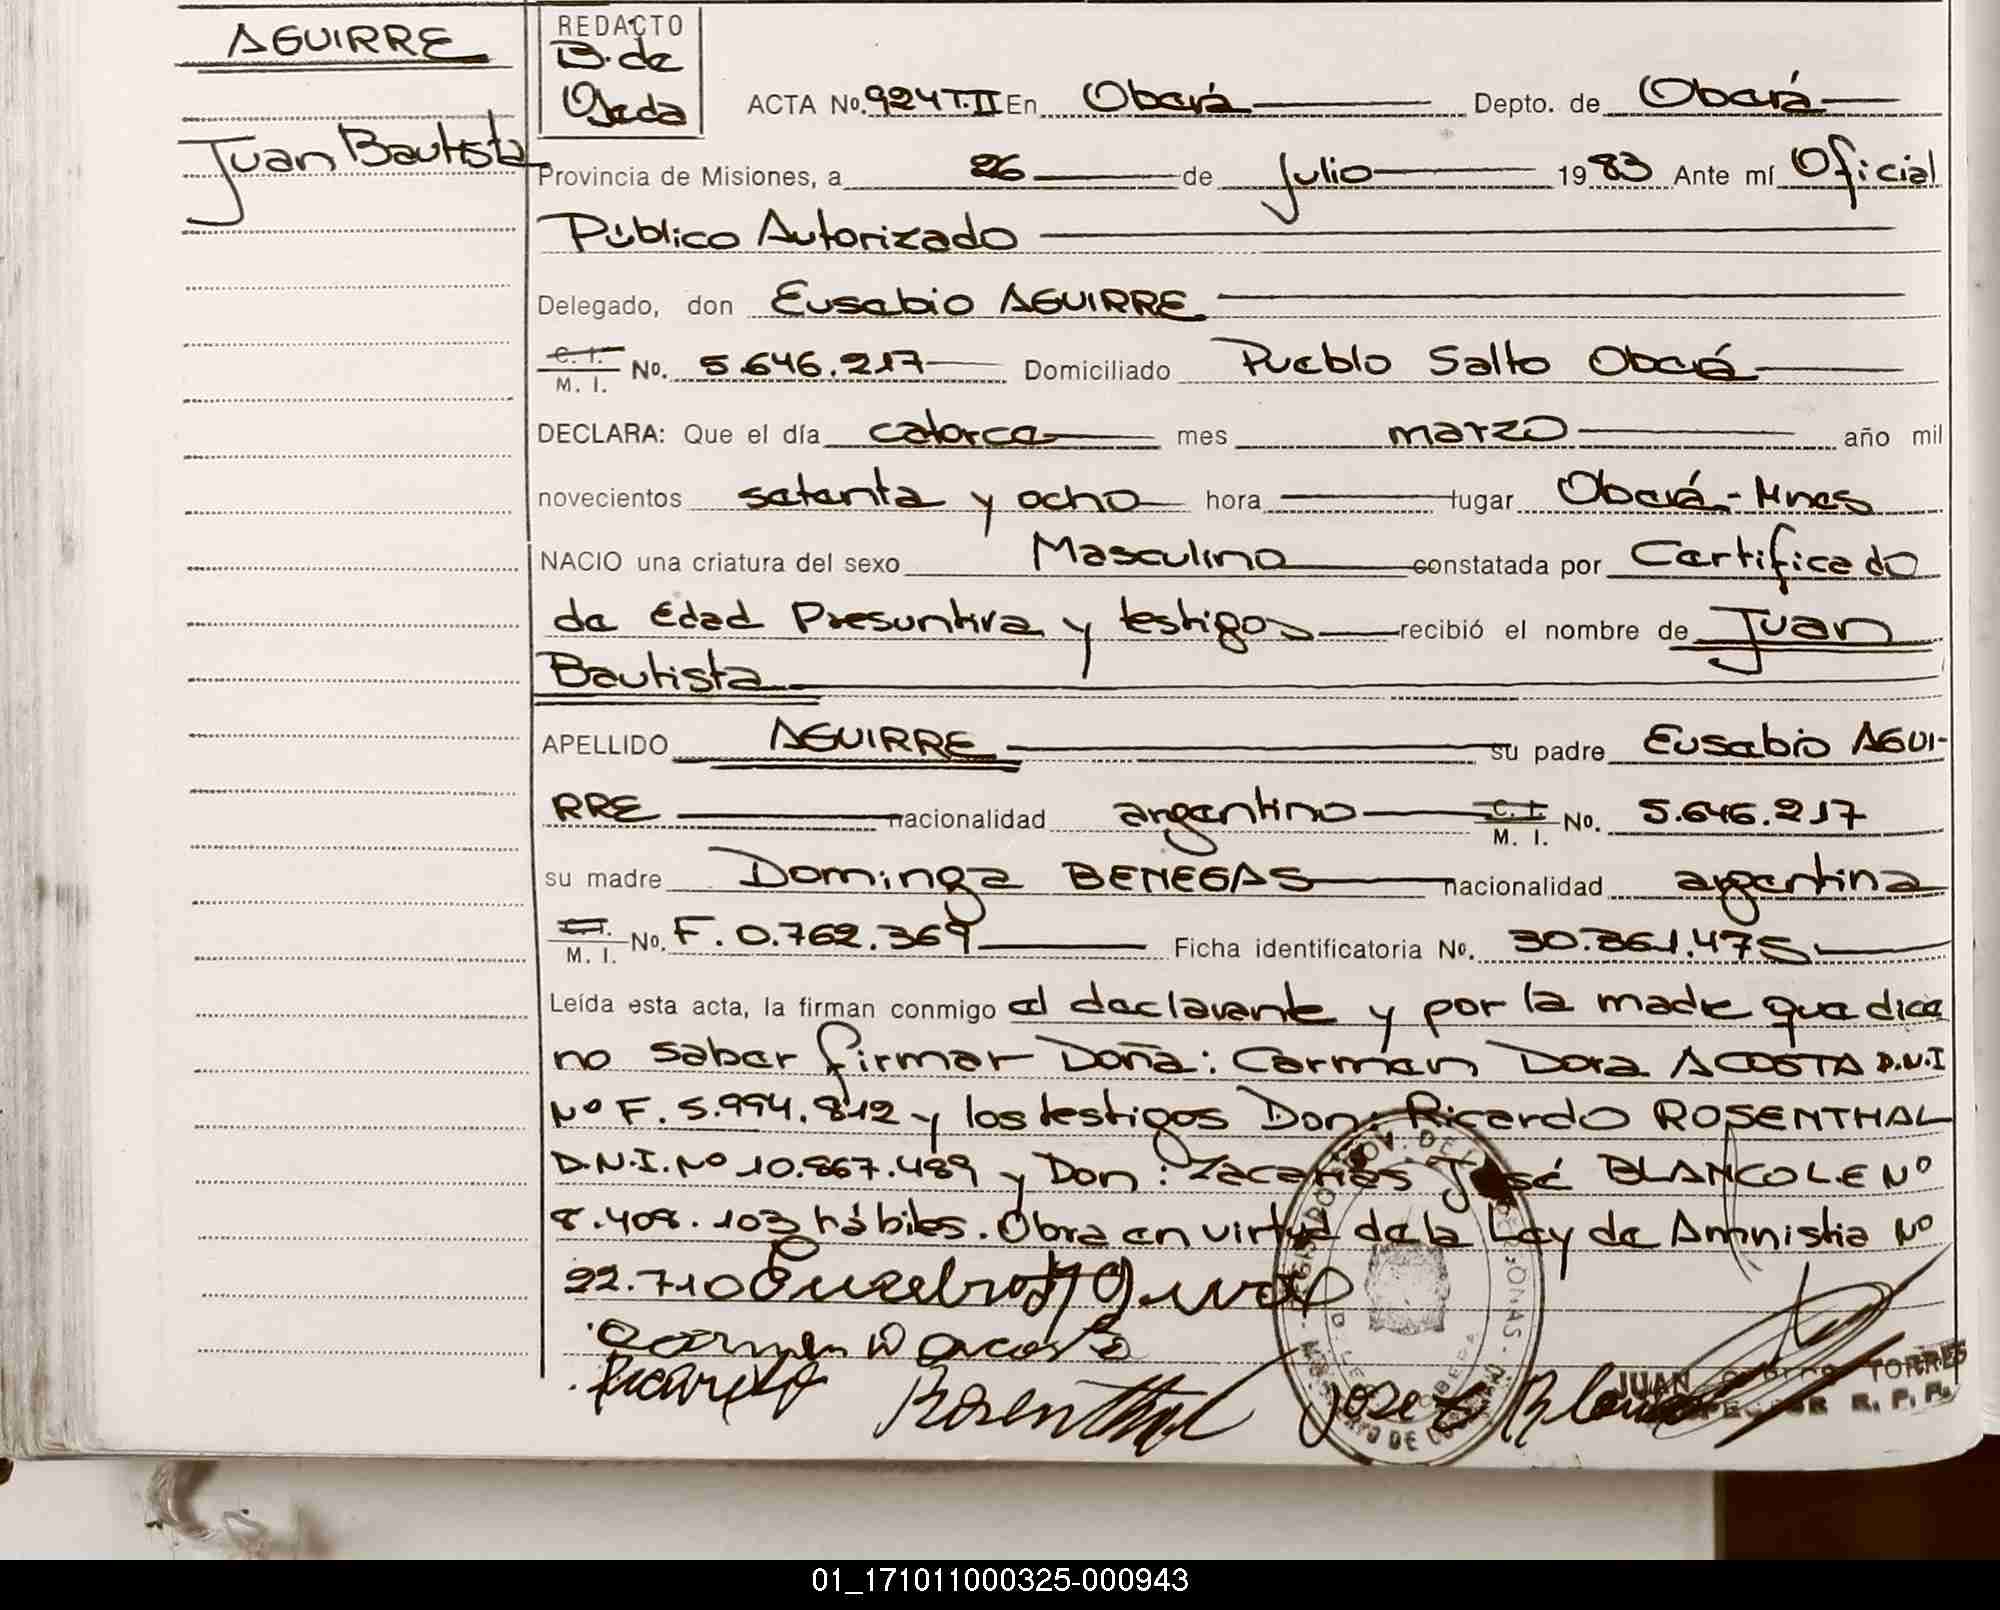 AGUIRRE
Juan Bautista
REDACTO
B. de
Ojeda
ACTA No. 924 T.II En Oberá Depto. de Oberá
Provincia de Misiones, a 26 de Julio 1983 Ante mí Oficial
Público Autorizado
Delegado, don Eusebio AGUIRRE
C. I.
M. I. No. 5.646.217 Domiciliado Pueblo Salto Oberá
DECLARA: Que el día catorce mes marzo año mil
novecientos setenta y ocho hora lugar Oberá - Mnes
NACIO una criatura del sexo Masculino constatada por Certificado
de Edad Presuntiva y testigos recibió el nombre de Juan
Bautista
APELLIDO AGUIRRE su padre Eusebio AGUI-
RRE nacionalidad argentino C. I. M. I. No. 5.646.217
su madre Dominga BENEGAS nacionalidad argentina
C. I. M. I. No. F. 0.762.369 Ficha identificatoria No. 30.861.475
Leída esta acta, la firman conmigo el declarante y por la madre que dice
no saber firmar Doña: Carmen Dora ACOSTA D.N.I
Nº F. 5.994.812 y los testigos Don: Ricardo ROSENTHAL
D.N.I. Nº 10.867.489 y Don: Zacarías José BLANCO L.E Nº
8.408.103 hábiles. Obra en virtud de la Ley de Amnistia Nº
22.710
Carmen D acosta
Ricardo Rosenthal
Jose Z Blanco
JUAN TORRES
R. P. P.
01_171011000325-000943